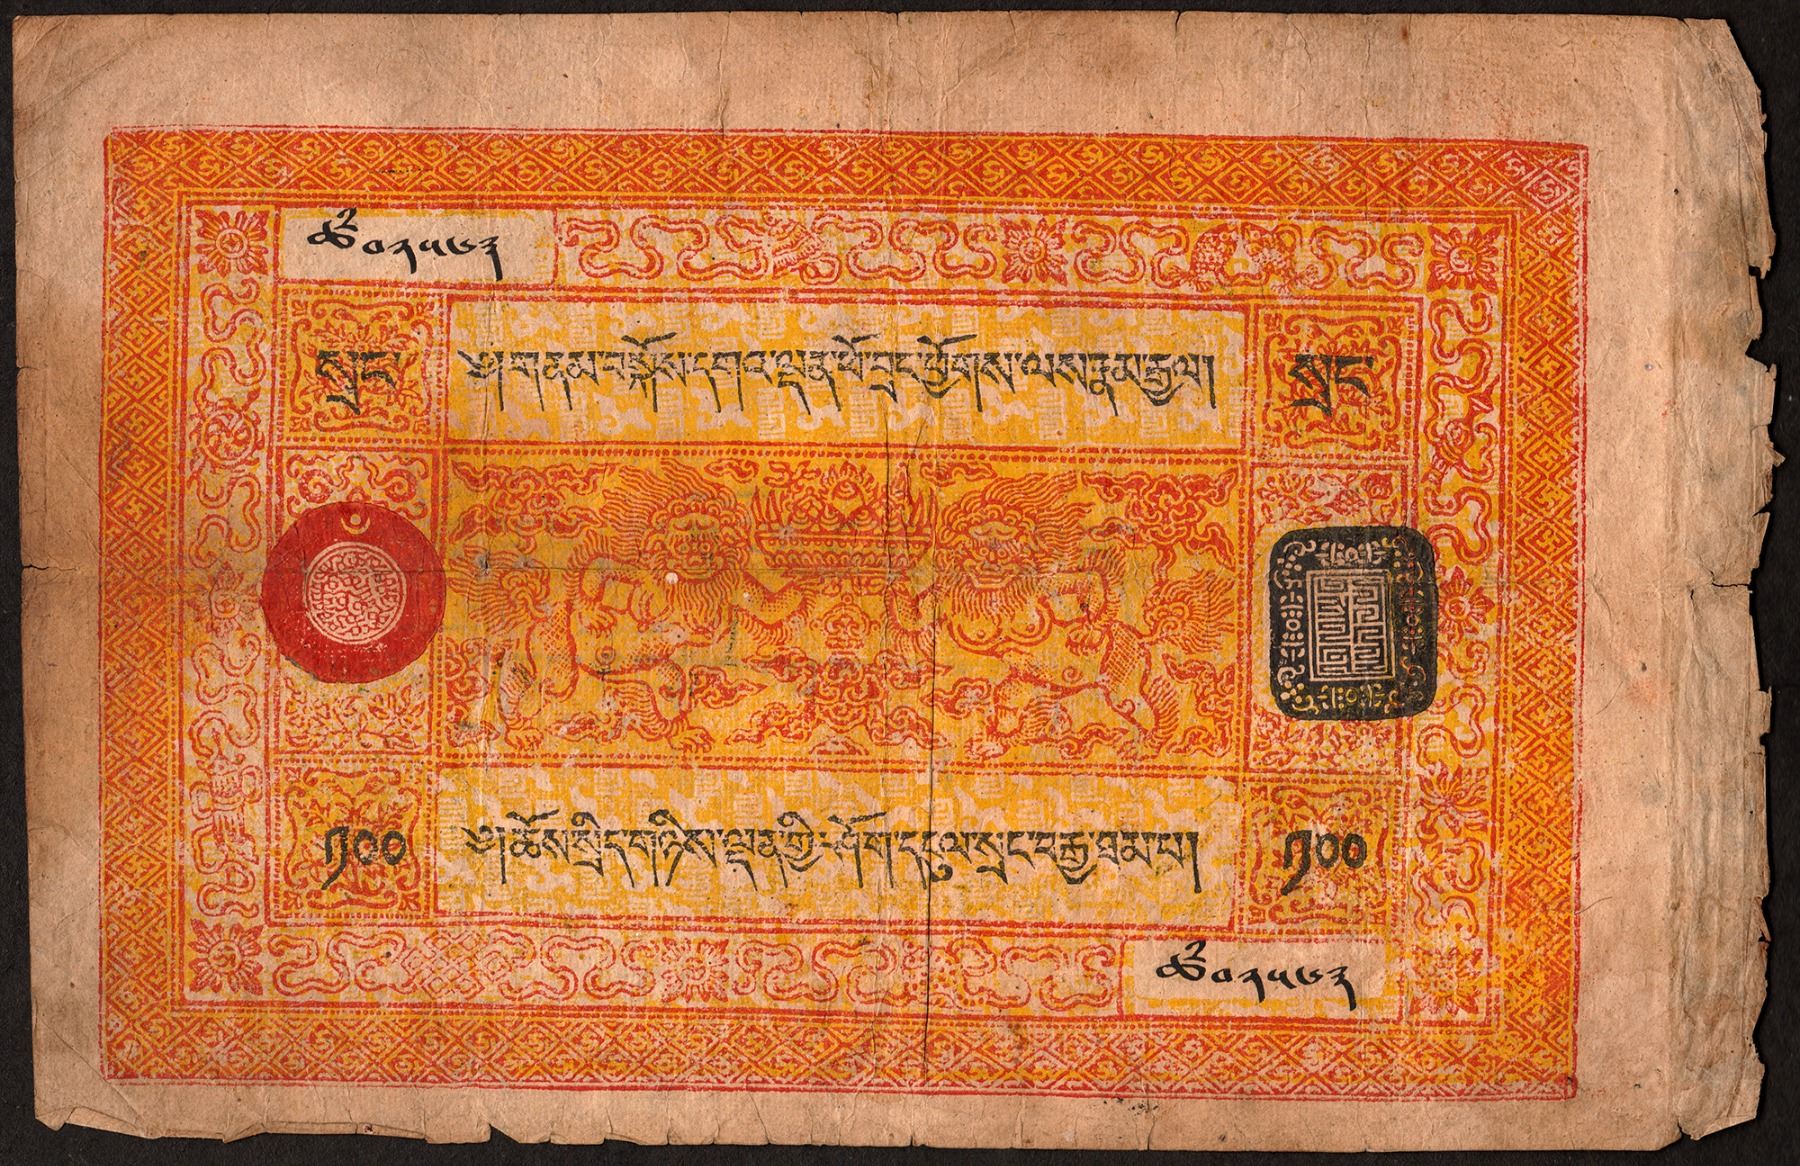 སྲང ༄། གནམ་བསྐོས་དགའ་ལྡན་ཕོ་བྲང་ཕྱོགས་ལས་རྣམ་རྒྱལ། སྲང
༡༠༠ ༄། ཆོས་སྲིད་གཉིས་ལྡན་གྱི་ཤོག་དངུལ་སྲང་བརྒྱ་ཐམ་པ། ༡༠༠